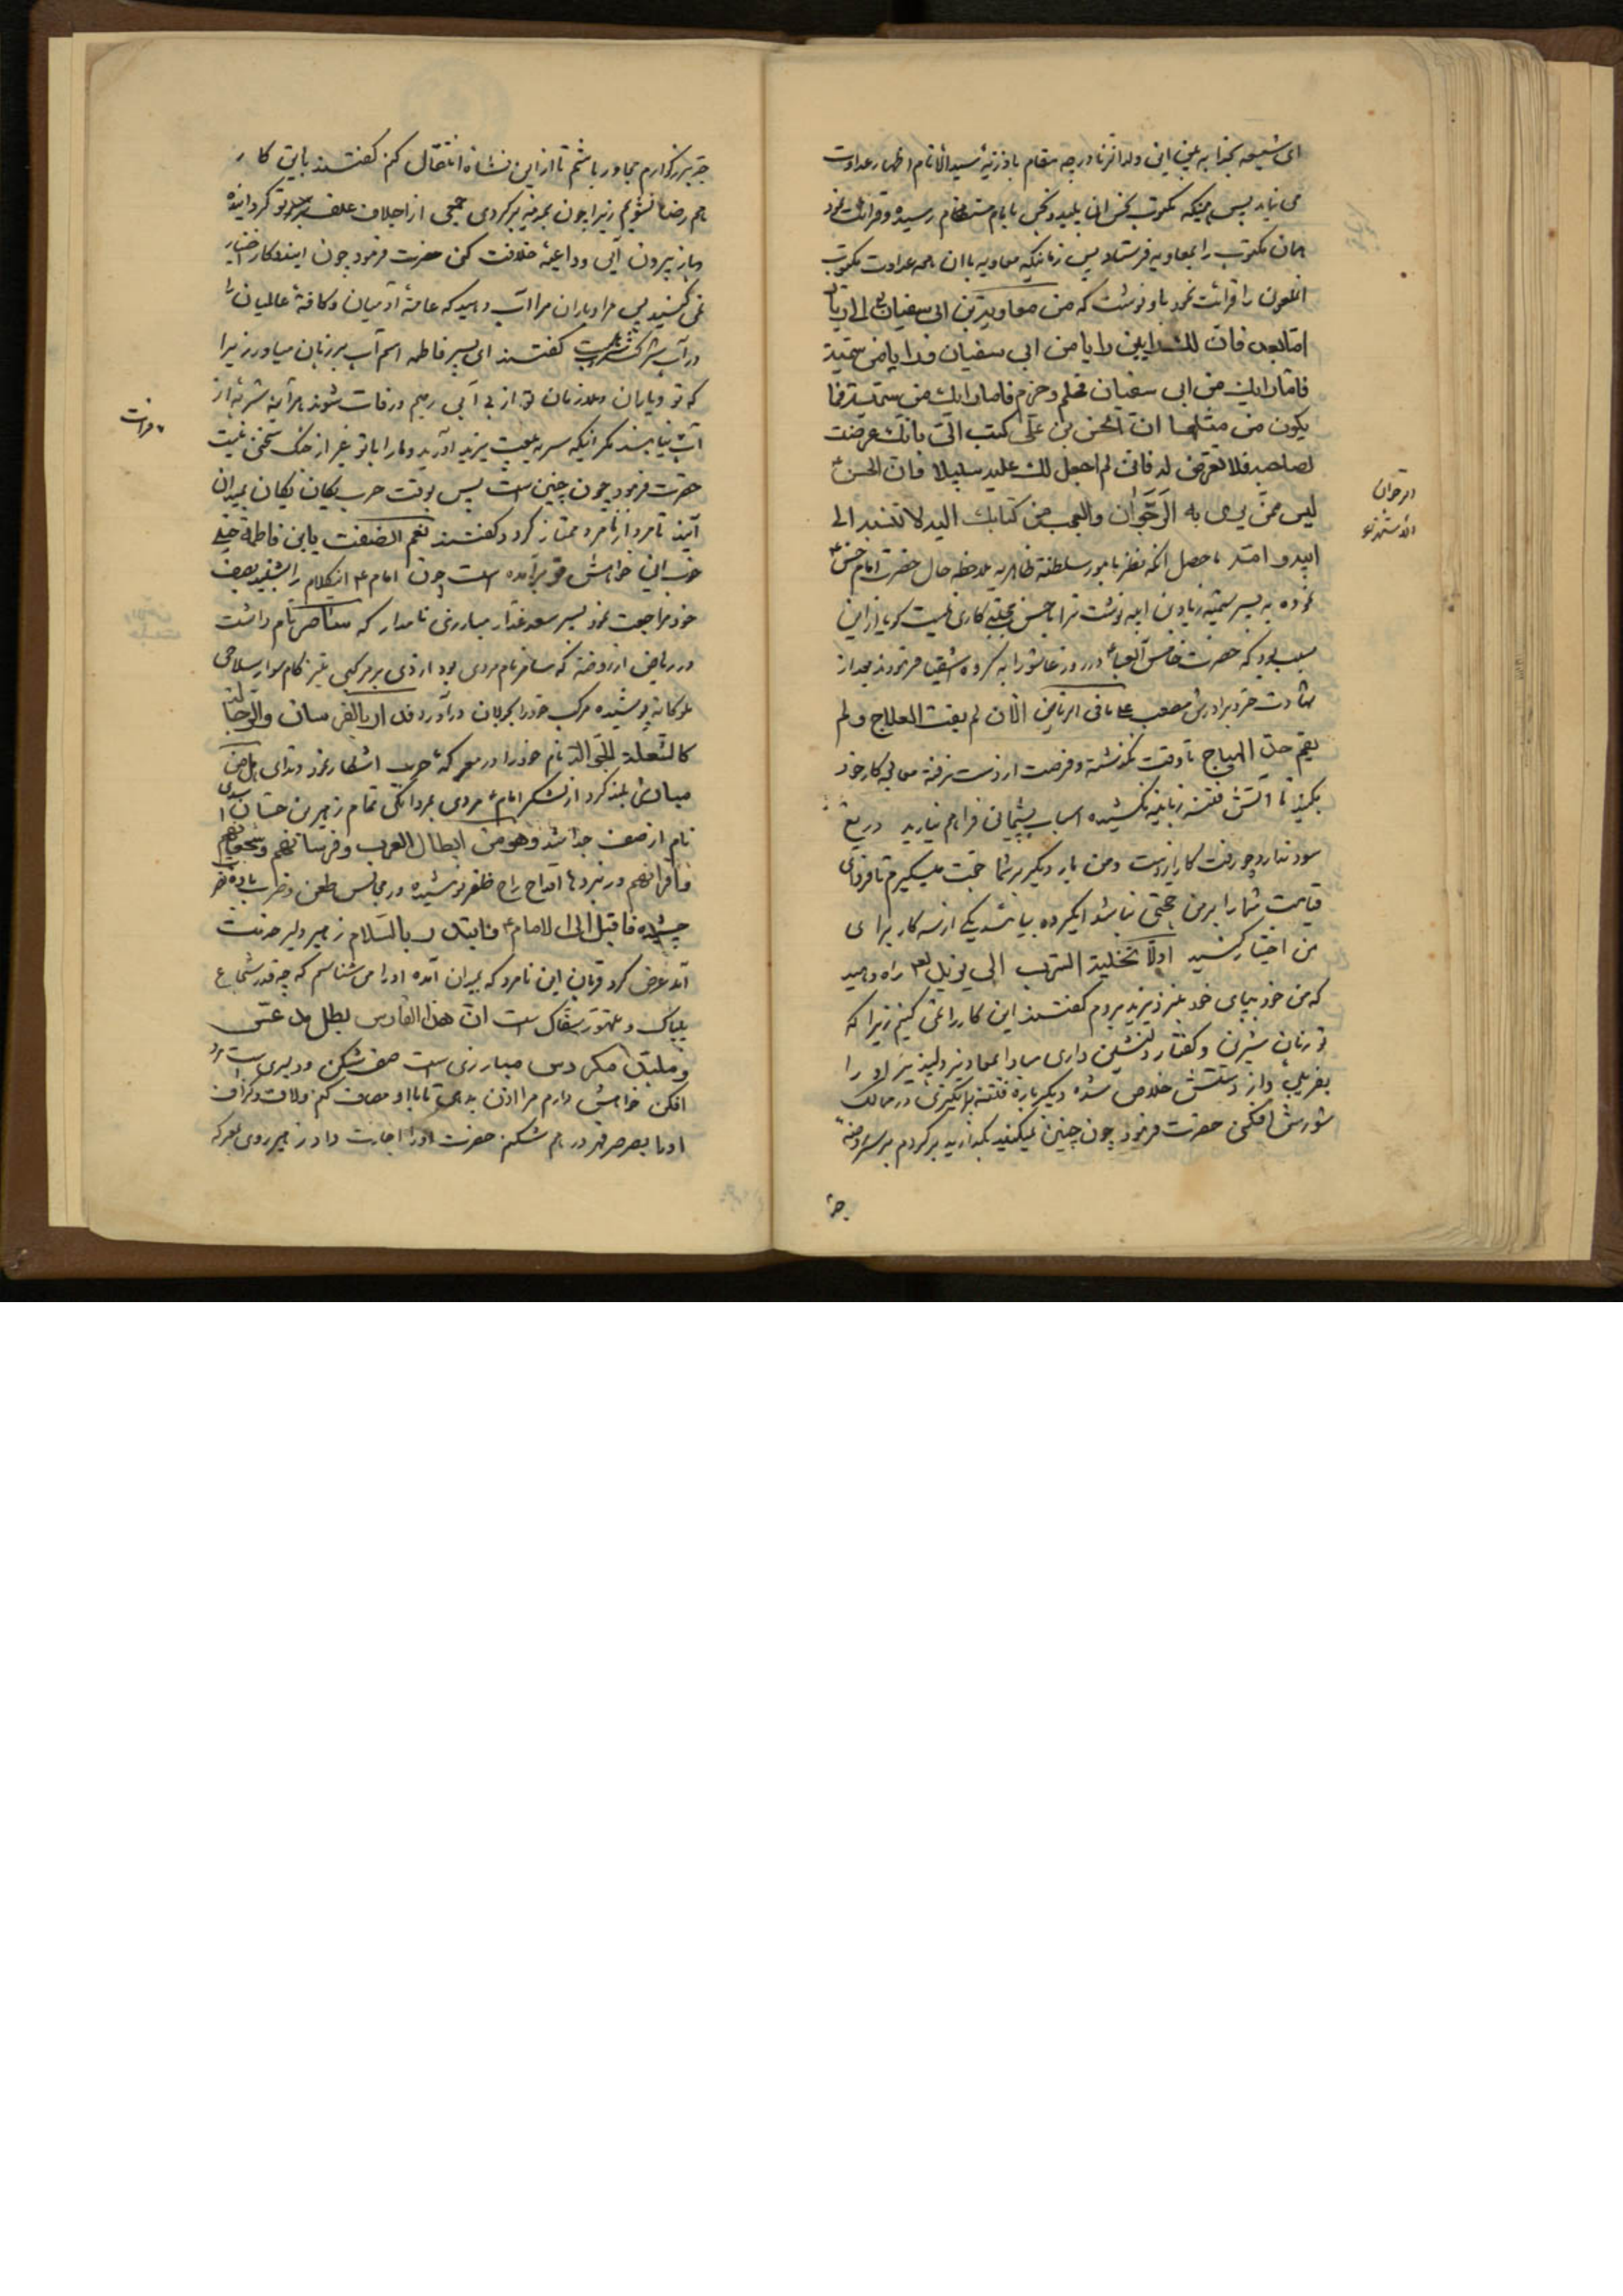 ای شیعه بخدا به بین این ولدالزنا درچه مقام با ذریهٔ سیدالانام اظهار عداوت
می نماید پس همینکه مکتوب نحس آن پلید نجس بامام رسیده و قرائت نمود
همان مکتوب را بمعاویه فرستاد پس زمانیکه معاویه با آن همه عداوت مکتوب
آنملعون را قرائت نمود باو نوشت که من معاویة بن ابی سفیان الی زیاد
اما بعد فان لک رایین رایا من ابی سفیان و رایا من سمیة
فاما رایک من ابی سفیان فحلم و حزم و اما رایک من سمیة فما
یکون من مثلها ان الحسن بن علی کتب الی بانک عرضت
لصاحبه فلا تعرض له فانی لم اجعل لک علیه سبیلا و ان الحسن ع
لیس ممن یرمی به الرجوان والعجب من کتابک الیه لا تنسبه الی
ابیه و امه ماحصل آنکه نظر بامور سلطنة ظاهریه ملاحظه حال حضرت امام حسن ع
نموده به پسر سمیه زیاد بن ابیه نوشت ترا با حسن مجتبی کاری نیست گویا از این
سبب بود که حضرت خامس آل عبا ع در روز عاشورا به گروه اشقیا فرمودند بعد از
شهادت برادرش مصعب علی ما فی الریاض الان لم یفت العلاج و لم
یقم حق الهیاج تا وقت نگذشته و فرصت از دست نرفته معالجه کار خود
بکنید تا آتش فتنه زبانه نکشیده اسباب پشیمانی فراهم نیارید دریغ
سود ندارد چو رفت کار از دست و من بار دیگر بر شما حجت میگیرم تا فردای
قیامت شما را برمن حجتی نباشد ایگروه بیائید یکی از سه کار برای
من اختیار کنید اولا تخلیة السرب الی یزید راه دهید
که من خود بپای خود بنزد یزید بروم گفتند این کار را نمی کنیم زیرا که
تو زبان شیرین و گفتار دلنشین داری مبادا او را
بفریبی و از دستش خلاص شده دیگر باره فتنه برانگیزی و در ممالک
شورش افکنی حضرت فرمود چون چنین نمیکنید بگذارید برگردم بر سر روضه
جد
الرجوان
الاستهزاء
جد بزرگوارم مجاور باشم تا از این نشاه انتقال کنم گفتند باین کار
هم رضا نشویم زیرا چون بمدینه برگردی جمعی از اجلاف عرب بر تو گرد آیند
و باز بیرون آیی و داعیهٔ خلافت کنی حضرت فرمود چون ایندو کار اختیار
نمی کنید پس مرا و یاران مرا آب دهید که عامهٔ آدمیان و کافهٔ عالمیان را
در آب شرکت است گفتند ای پسر فاطمه اسم آب بر زبان میاور زیرا
که تو و یاران و زنان تو از بی آبی رحیم و رفات شوند هرآینه شربه از
آب نیابند مگر اینکه سر به بیعت یزید آورید و ما را با تو غیر از جنگ سخنی نیست
فرات
حضرت فرمود چون چنین است پس بوقت حرب یکان یکان بمیدان
آیند تا مرد از نامرد ممتاز گردد گفتند نعم انصفت یابن فاطمة خیلی
خوب این خواهش تو برآمده است چون امام ع اینکلام را بشنید بصف
خود مراجعت نمود پسر سعد غدار مبارزی نامدار که سامر نام داشت
و در ریاض از روضه که سامر نام مردی بود ازدی بر مرکبی تیز گام سوار سلاحی
ملوکانه پوشیده مرکب خود را بجولان درآورد
کالشعلة نام خود را در معرکهٔ حرب آشکار نمود و ندای هل من
مبارز بلند کرد از لشکر امام ع مردی بمردانگی تمام زهیر بن حسان اسدی
نام از صف جدا شد و هو من ابطال العرب و فرسانهم و شجعانهم
و اقرانهم در نبردها اقداح راح ظفر نوشیده و در مجالس طعن و ضرب باده
چشیده فاقبل الی الامام ع و ابتدء بالسلام زهیر دلیر خدمت
آمد عرض کرد قربان این نامرد که بمیدان آمده او را می شناسم که چه قدر شجاع
بیباک و متهور سفاک است ان هذا الفارس بطل
مبارزی است صف شکن و دلیری است مرد
افکن خواهش دارم مرا اذن بدهی تا با او مصاف کنم و لاف و گزاف
او را بصرصر قهر درهم شکنم حضرت او را اجازت داد زهیر روی بمعرکه